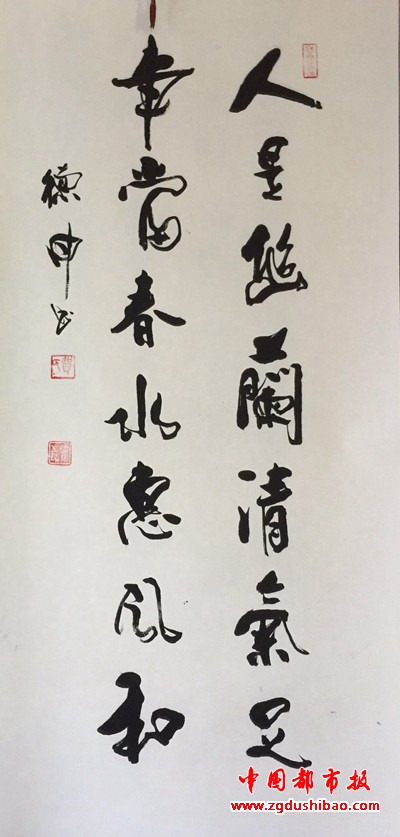 人是幽蘭清氣足
年當春水惠風和
德申书
中国都市报
www.zgdushibao.com